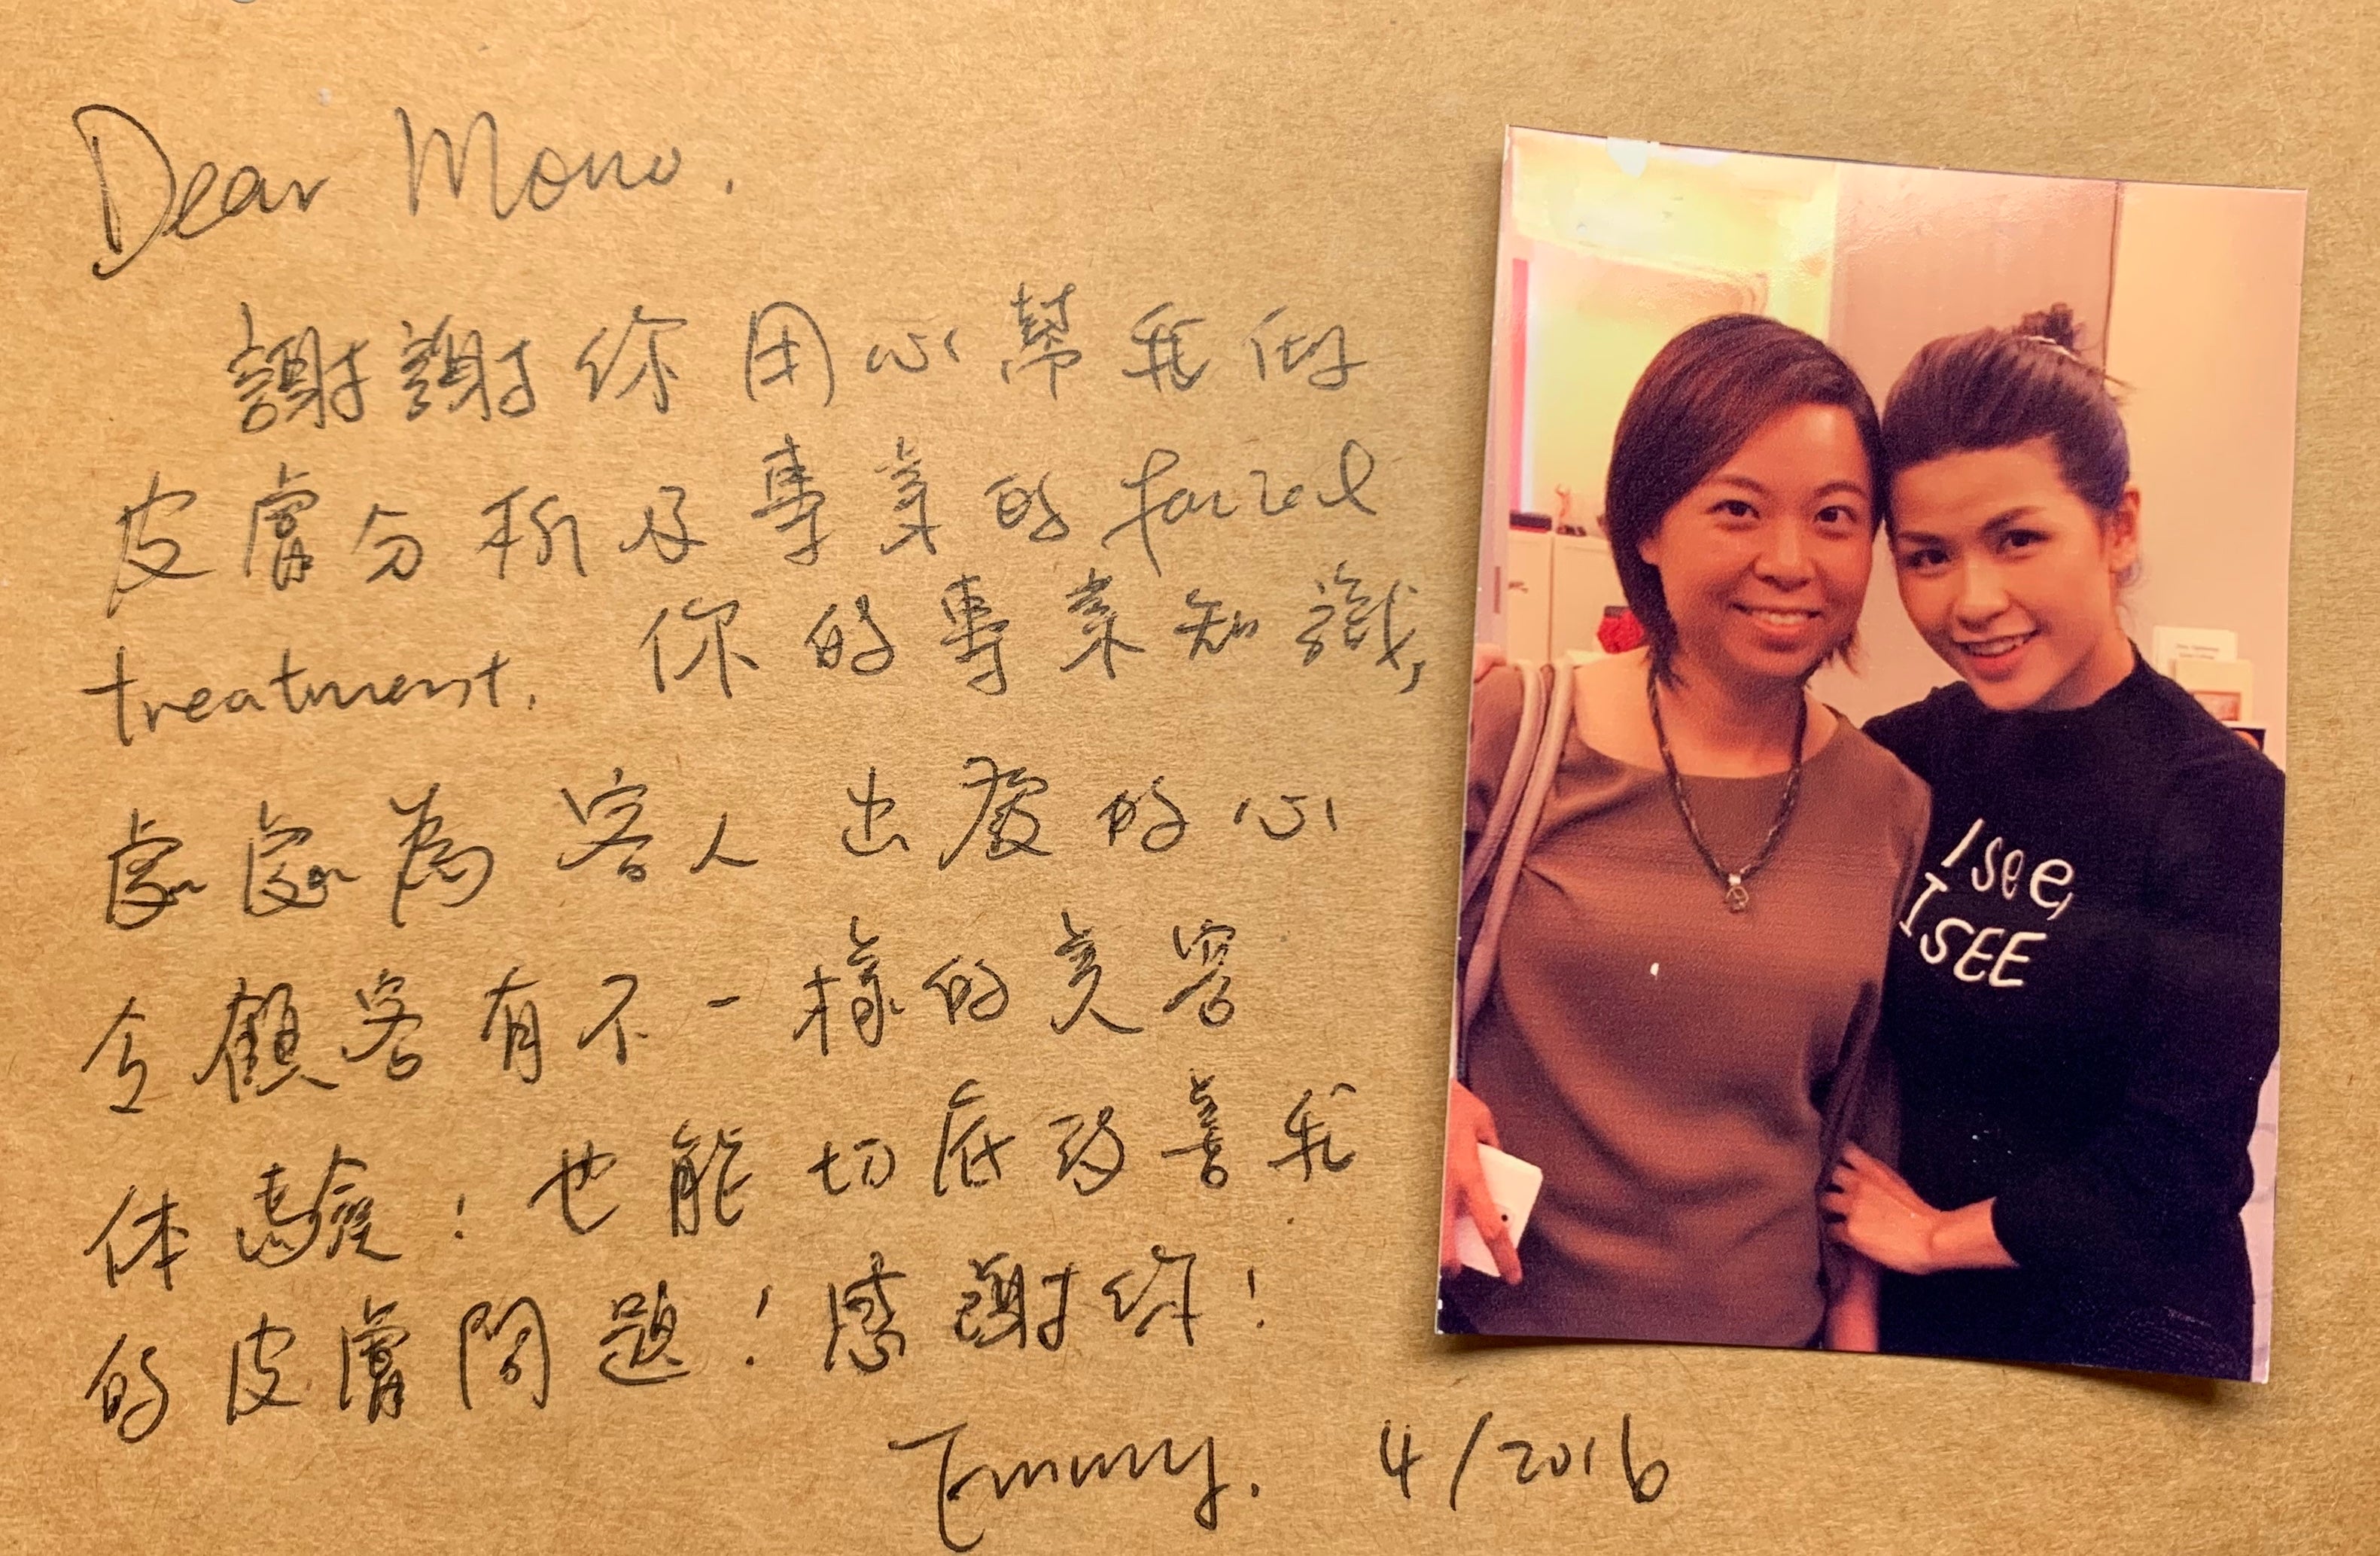 Dear Mono.
謝謝你用心幫我做
皮膚分析及專業的facial
treatment. 你的專業知識,
處處為客人出發的心
令顧客有不一樣的美容
体驗! 也能切底改善我
的皮膚問題! 感謝你!
Emmy. 4/2016
I see,
I SEE